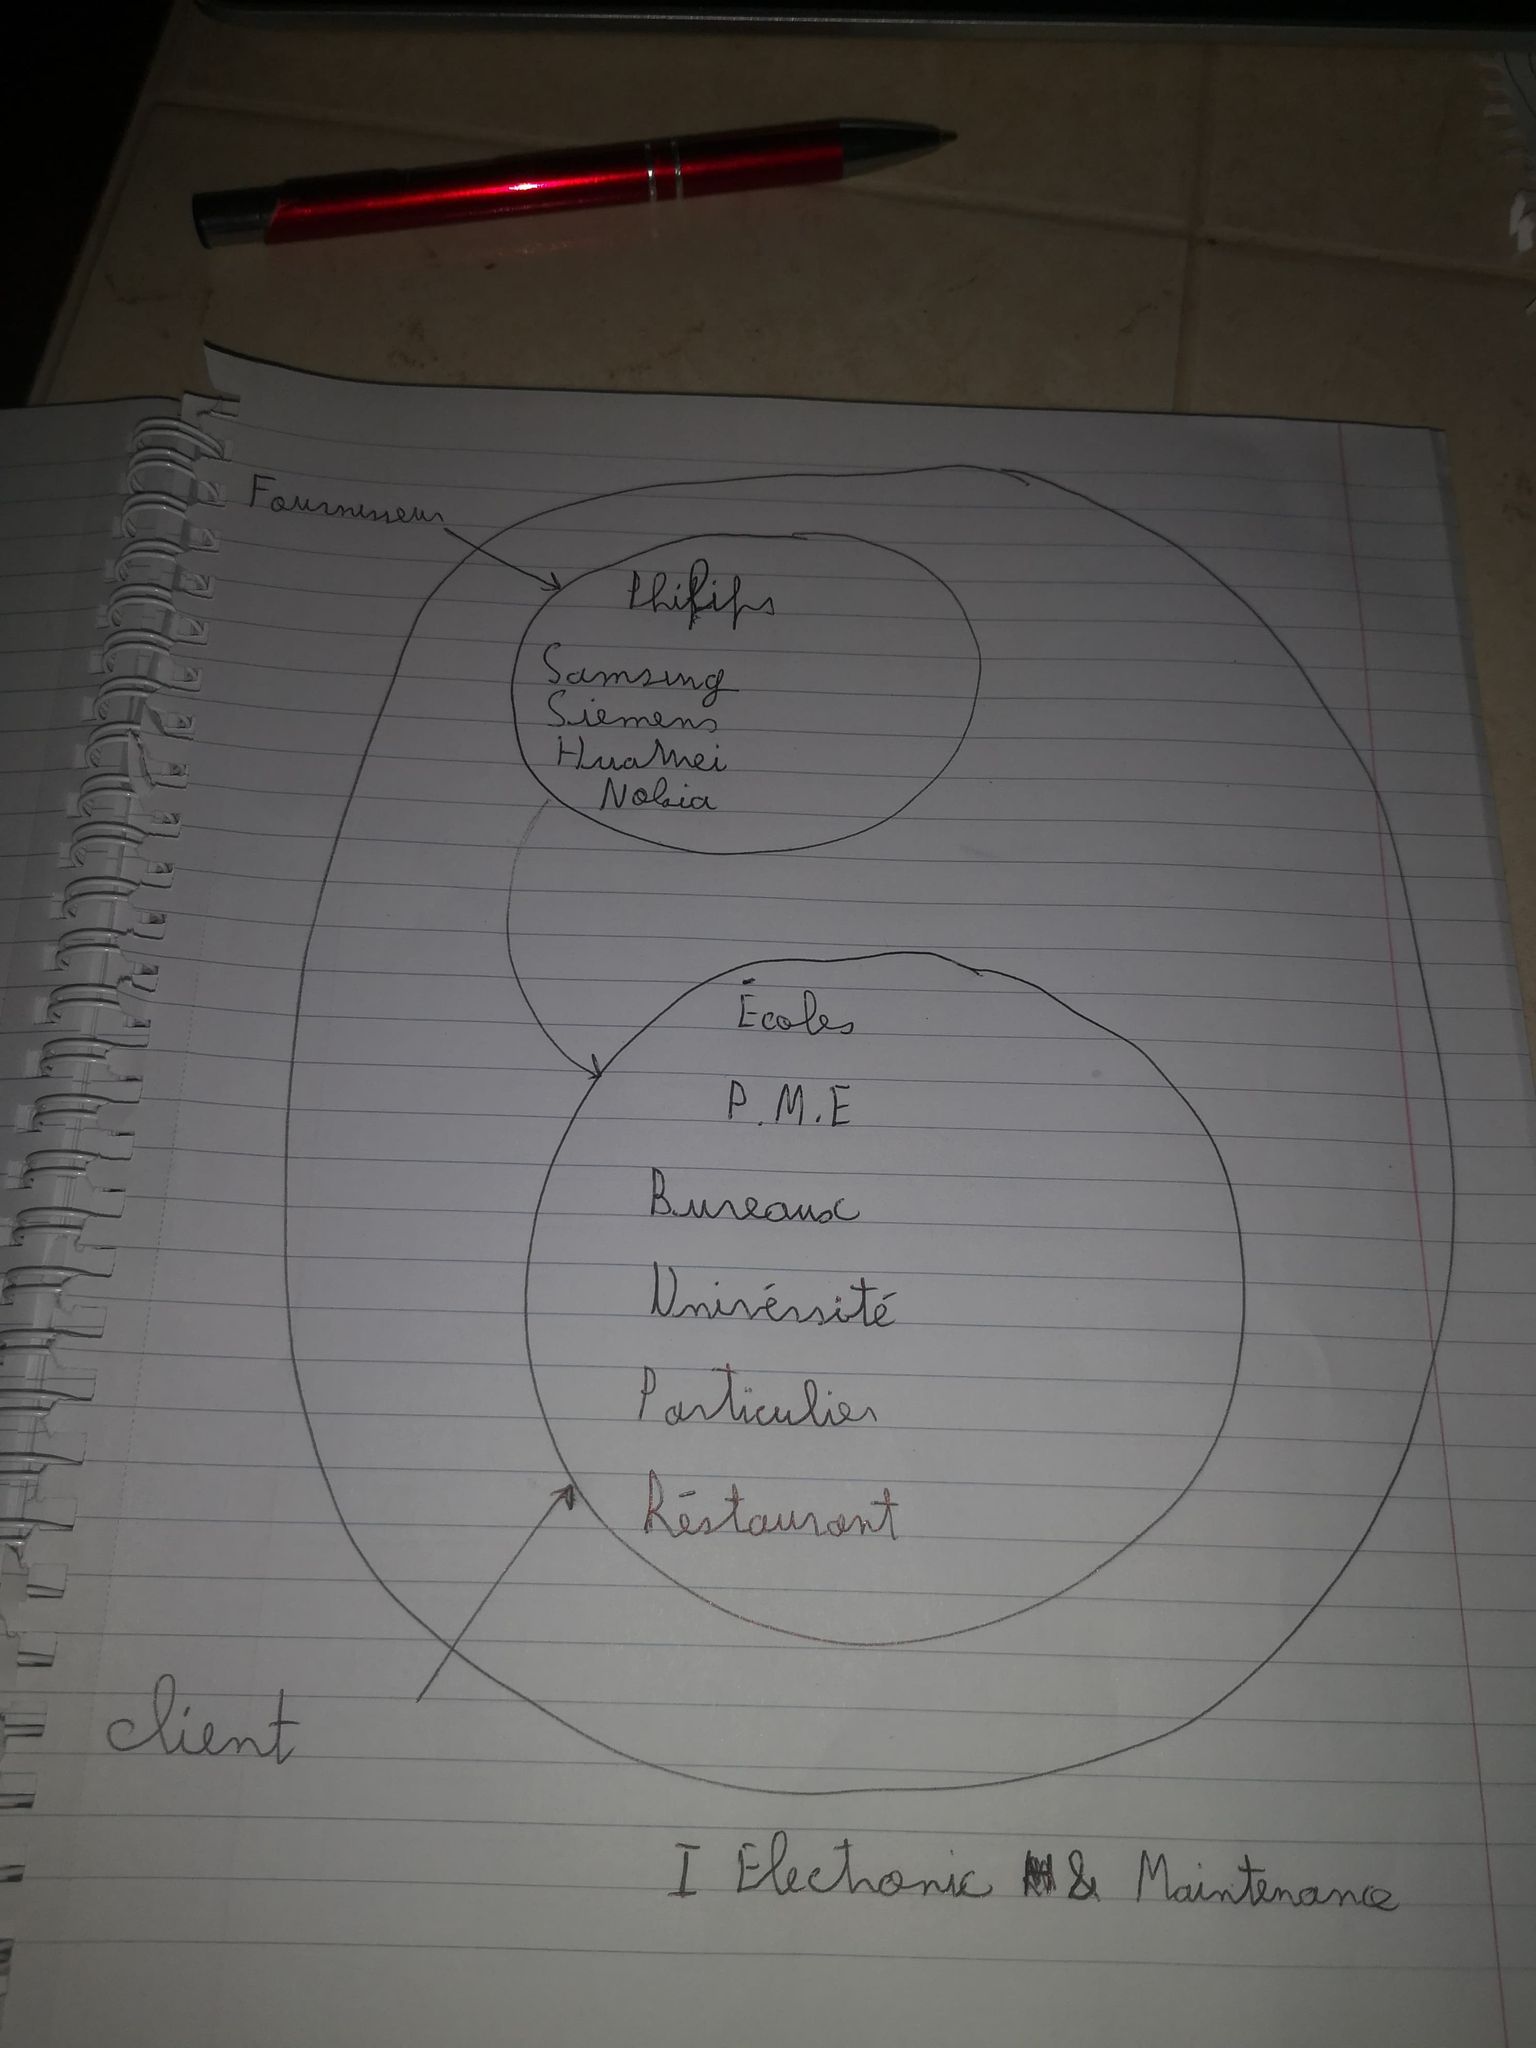 Fournisseur
Philips
Samsung
Siemens
HuaWei
Nokia
Écoles
P.M.E
Bureaux
Univérsité
Particulier
Réstaurant
client
I Electronic & Maintenance